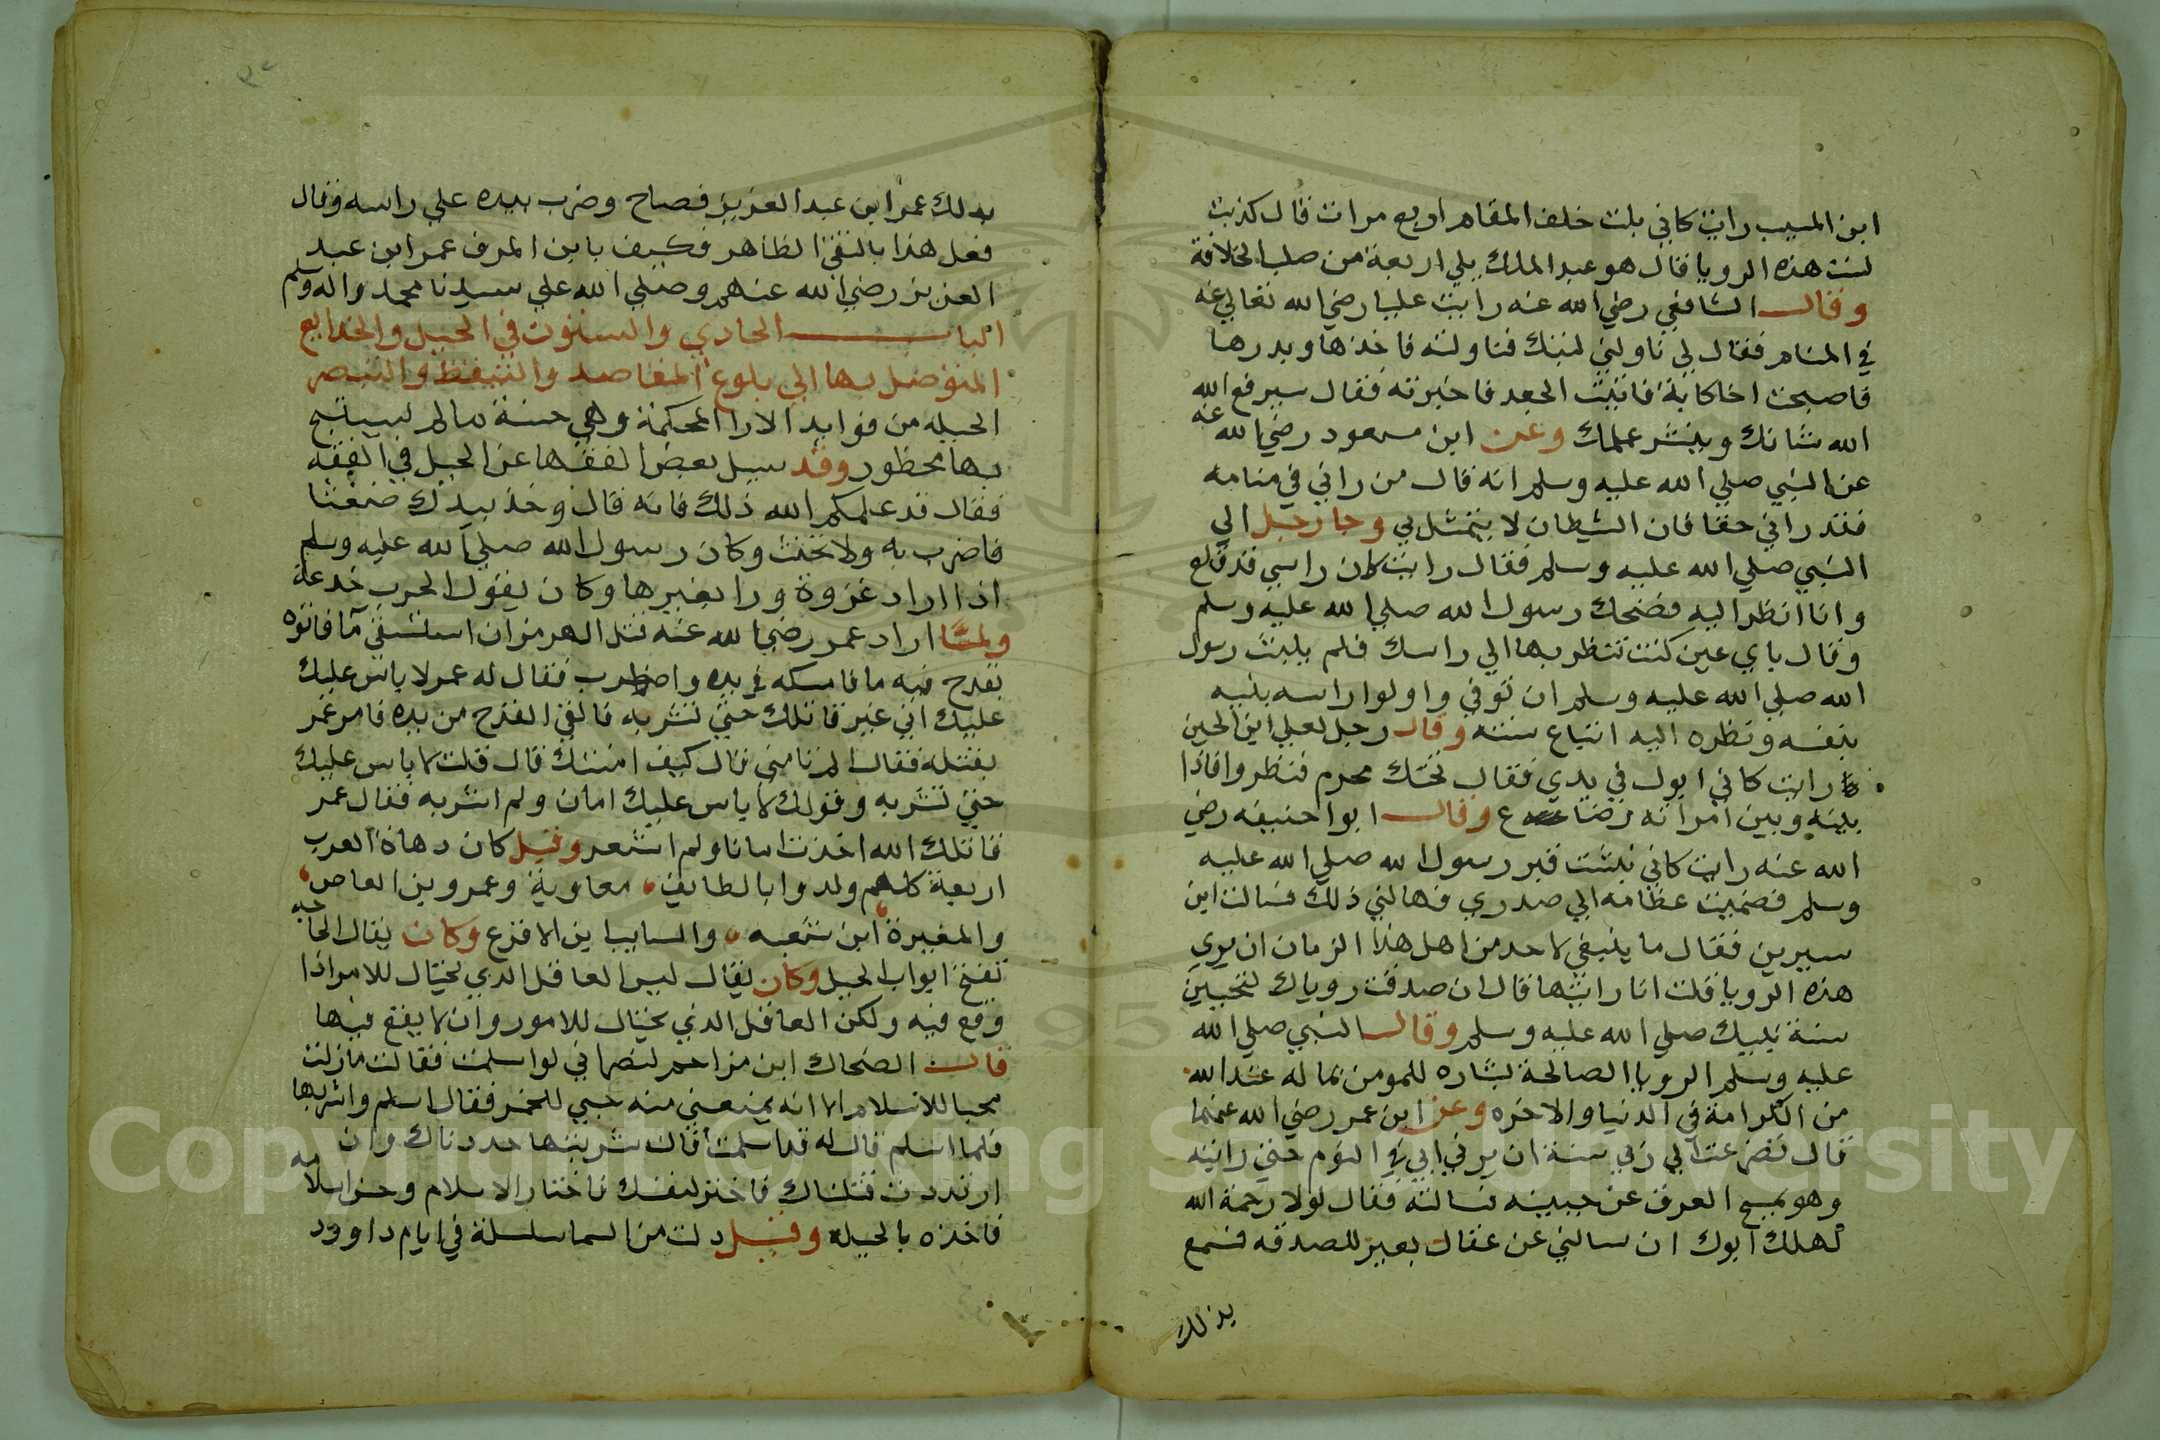 ابن المسيب رايت كاني بلت خلف المقام اربع مرات قال كذبت
لست هذه الرويا قال هو عبد الملك يلي اربعة من صلبه الخلافة
وقال الشافعي رضي الله عنه رايت عليا رضي الله تعالي عنه
في المنام فقال لي ناولني كتبك فناولته فاخذها وبددها
فاصبحت اخا كابة فاتيت الجعد فاخبرته فقال سيرفع الله
الله شانك وينشر علمك وعن ابن مسعود رضي الله عنه
عن النبي صلي الله عليه وسلم انه قال من راني في منامه
فقد راني حقا فان الشيطان لا يتمثل بي وجا رجل الي
النبي صلي الله عليه وسلم فقال رايت كان راسي قد قطع
وانا انظر اليه فضحك رسول الله صلي الله عليه وسلم
وقال باي عين كنت تنظر بها الي راسك فلم يلبث رسول
الله صلي الله عليه وسلم ان توفي واولوا راسه بنبيه
بنفسه ونظره اليه اتباع سنته وقال رجل لعلي ابن الحسين
رايت كاني ابول في يدي فقال تحتك محرم فنظروا فاذا
بينه وبين امراته رضاع وقال ابوا حنيفه رضي
الله عنه رايت كاني نبشت قبر رسول الله صلي الله عليه
وسلم فضممت عظامه الي صدري فهالني ذلك فسالت ابن
سيرين فقال ما ينبغي لاحد من اهل هذا الزمان ان يري
هذه الرويا قلت انا رايتها قال ان صدقت روياك لتحيين
سنة نبيك صلي الله عليه وسلم وقال النبي صلي الله
عليه وسلم الرويا الصالحة بشاره للمومن بما له عند الله
من الكرامة في الدنيا والاخره وعن ابن عمر رضي الله عنهما
قال تضرعت الي ربي سنة ان يرني ابي في النوم حتي رايته
وهو يمسح العرق عن جبينه فسالته فقال لولا رحمة الله
لهلك ابوك ان سالني عن عقال بعير للصدقه فسمع
بذلك
بذلك عمر ابن عبد العزيز فصاح وضرب بيده علي راسه وقال
فعل هذا بالتقي الطاهر فكيف بابن المترف عمر ابن عبد
العزيز رضي الله عنهم وصلي الله علي سيدنا محمد واله وسلم
الباب الحادي والستون في الحيل والخدايع
المتوصل بها الي بلوغ المقاصد والتيقظ والتبصر
الحيله من فوايد الارا المحكمة وهي حسنة ما لم يستبح
بها محظور وقد سيل بعض الفقها عن الحيل في الفقه
فقال قد علمكم الله ذلك فانه قال وخذ بيدك ضغثا
فاضرب به ولا تحنث وكان رسول الله صلي الله عليه وسلم
اذا اراد غزوة ورا بغيرها وكان يقول الحرب خدعة
ولما اراد عمر رضي الله عنه قتل الهرمزان استسقي ما فاتوه
بقدح فيه ما فامسكه في يده واضطرب فقال له عمر لا باس عليك
عليك اني غير قاتلك حتي تشربه فالقي القدح من يده فامر عمر
بقتله فقال الم تامني قال كيف امنتك قال قلت لا باس عليك
حتي تشربه وقولك لا باس عليك امان ولم اشربه فقال عمر
قاتلك الله اخذت امانا ولم اشعر وقيل كان دهاة العرب
اربعة كلهم ولدوا بالطايف معاوية وعمرو بن العاص
والمغيرة ابن شعبه والسايب ابن الاقرع وكان يقال الحاجه
تفتح ابواب الحيل وكان يقال ليس العاقل الذي يحتال للامر اذا
وقع فيه ولكن العاقل الذي يحتال للامور وان لا يقع فيها
قال الضحاك ابن مزاحم لنصراني لو اسلمت فقال ما زلت
محبا للاسلام الا انه يمنعني منه حبي للخمر فقال اسلم واشربها
فلما اسلم قال له قد اسلمت فان شربتها حددناك وان
ارتددت قتلناك فاختر لنفسك فاختار الاسلام وحسن اسلامه
فاخذه بالحيله وقيل دلت من السما سلسلة في ايام داوود